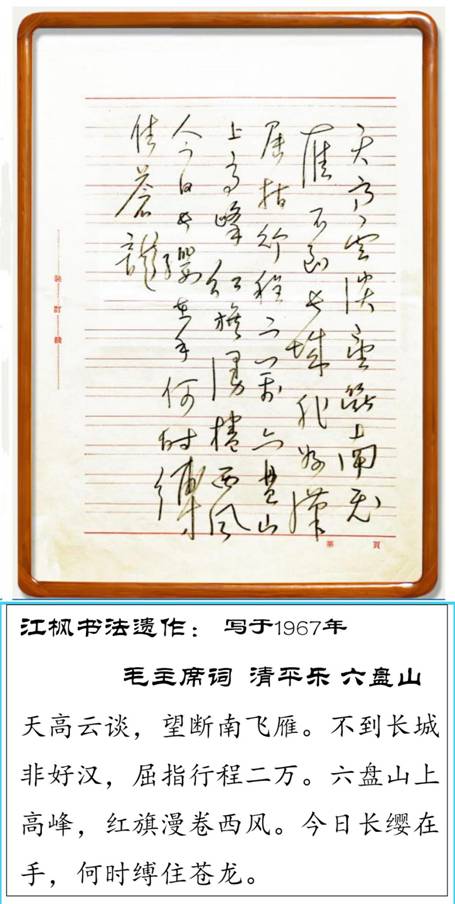 天高雲淡望断南飛
雁不到长城非好漢
屈指行程二萬六盘山
上高峰红旗漫捲西风
今日长缨在手何时缚
住蒼龍
装订线
第 頁
江枫书法遗作： 写于1967年
毛主席词 清平乐 六盘山
天高云谈，望断南飞雁。不到长城
非好汉，屈指行程二万。六盘山上
高峰，红旗漫卷西风。今日长缨在
手，何时缚住苍龙。